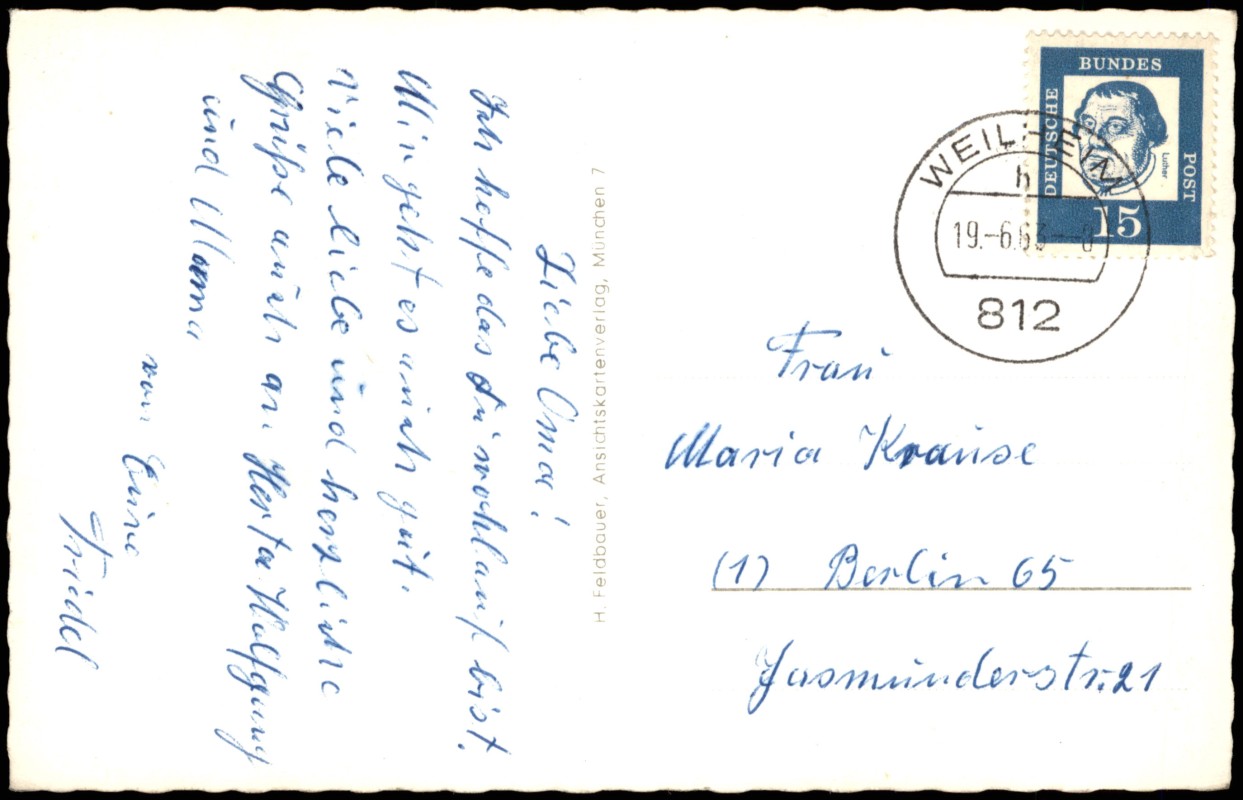 Liebe Oma!
Ich hoffe das Du wohlauf bist.
Mir geht es auch gut.
Viele liebe und herzliche
Grüße auch an Herta Wolfgang
und Mama
von Eure
Friedel
H. Feldbauer, Ansichtskartenverlag, München 7
BUNDES
DEUTSCHE
POST
Luther
15
WEILHEIM
h
19.-6.63--8
812
Frau
Maria Krause
(1) Berlin 65
Jasmunderstr. 21